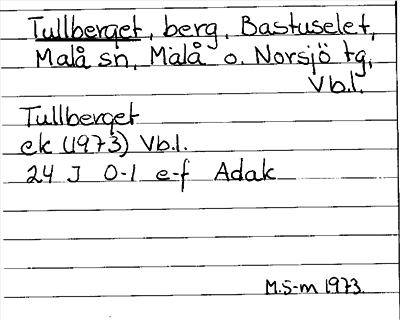 Tullberget, berg, Bastuselet,
Malå sn, Malå o. Norsjö tg,
Vb.l.
Tullberget
ek (1973) Vb.l.
24 J 0-1 e-f Adak
M.S-m 1973.